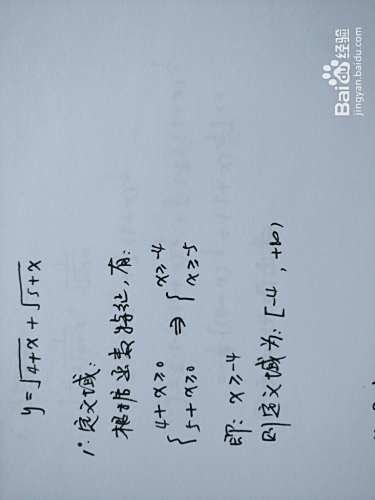 y=√4+x + √5+x
1°定义域:
根据函数特征,有:
{4+x≥0 ⇒ {x≥-4
{5+x≥0 {x≥-5
即: x≥-4
则定义域为: [-4, +∞)
Baidu经验
jingyan.baidu.com